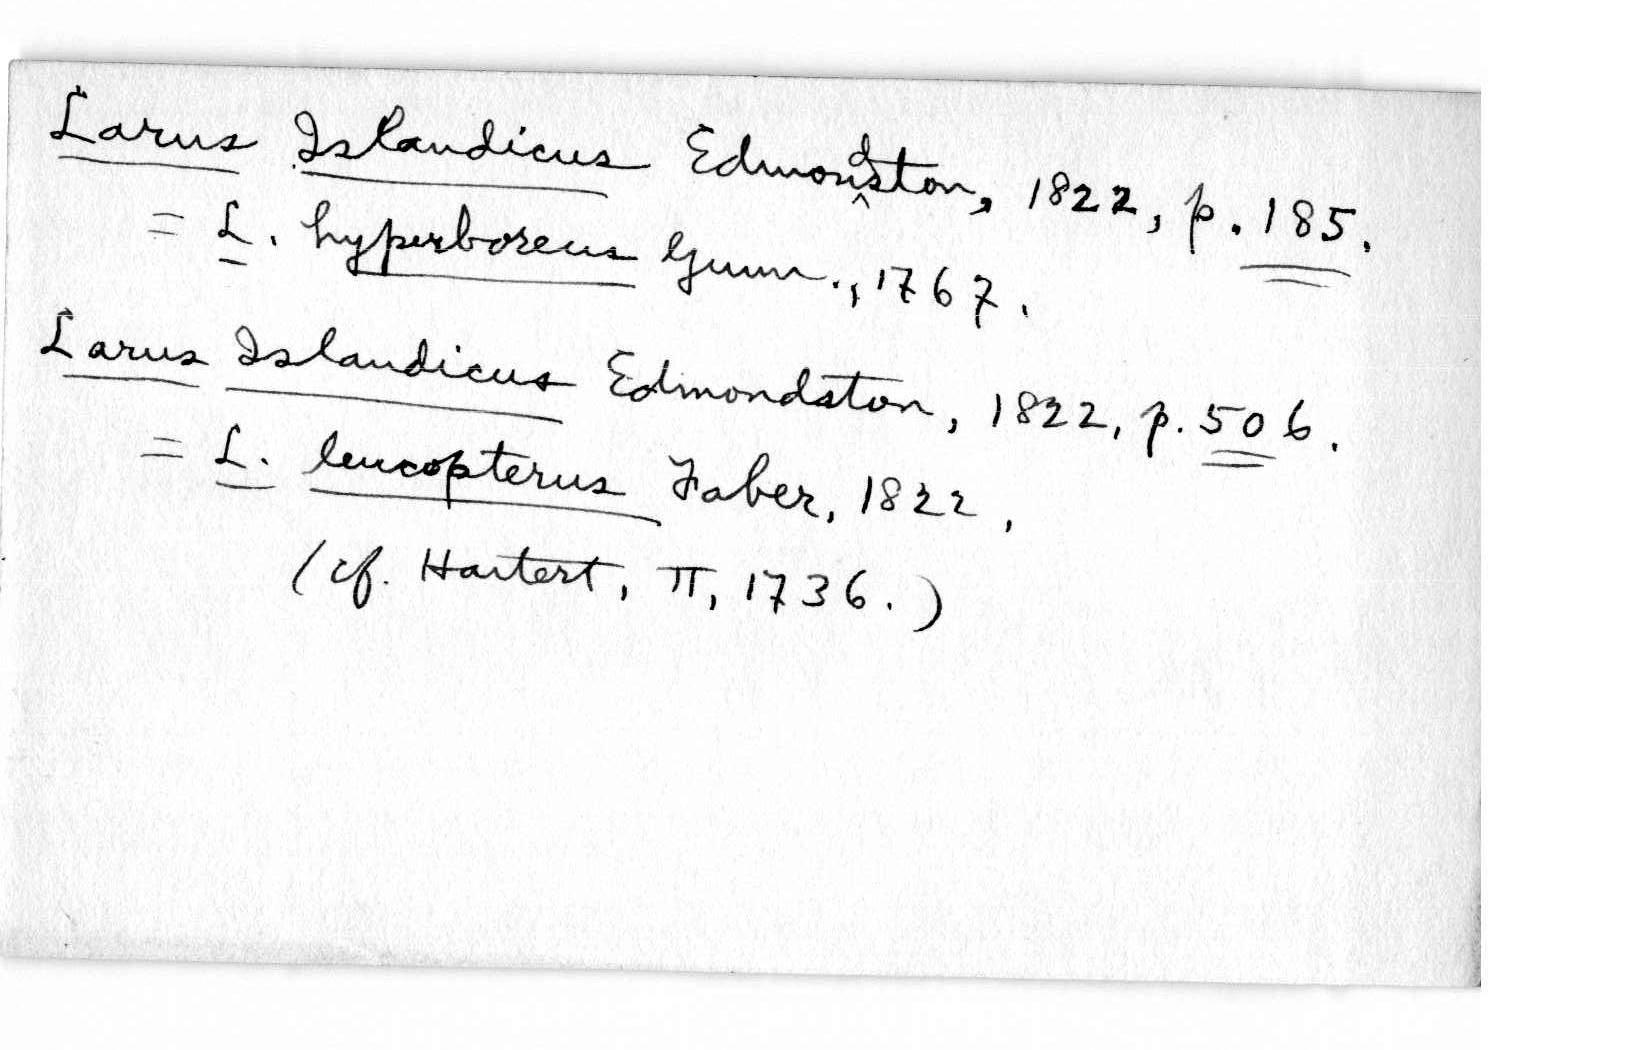 Larus Islandicus Edmondston, 1822, p. 185.
= L. hyperboreus Gunn., 1767.
Larus Islandicus Edmondston, 1822, p. 506.
= L. leucopterus Faber, 1822,
(cf. Hartert, II, 1736.)